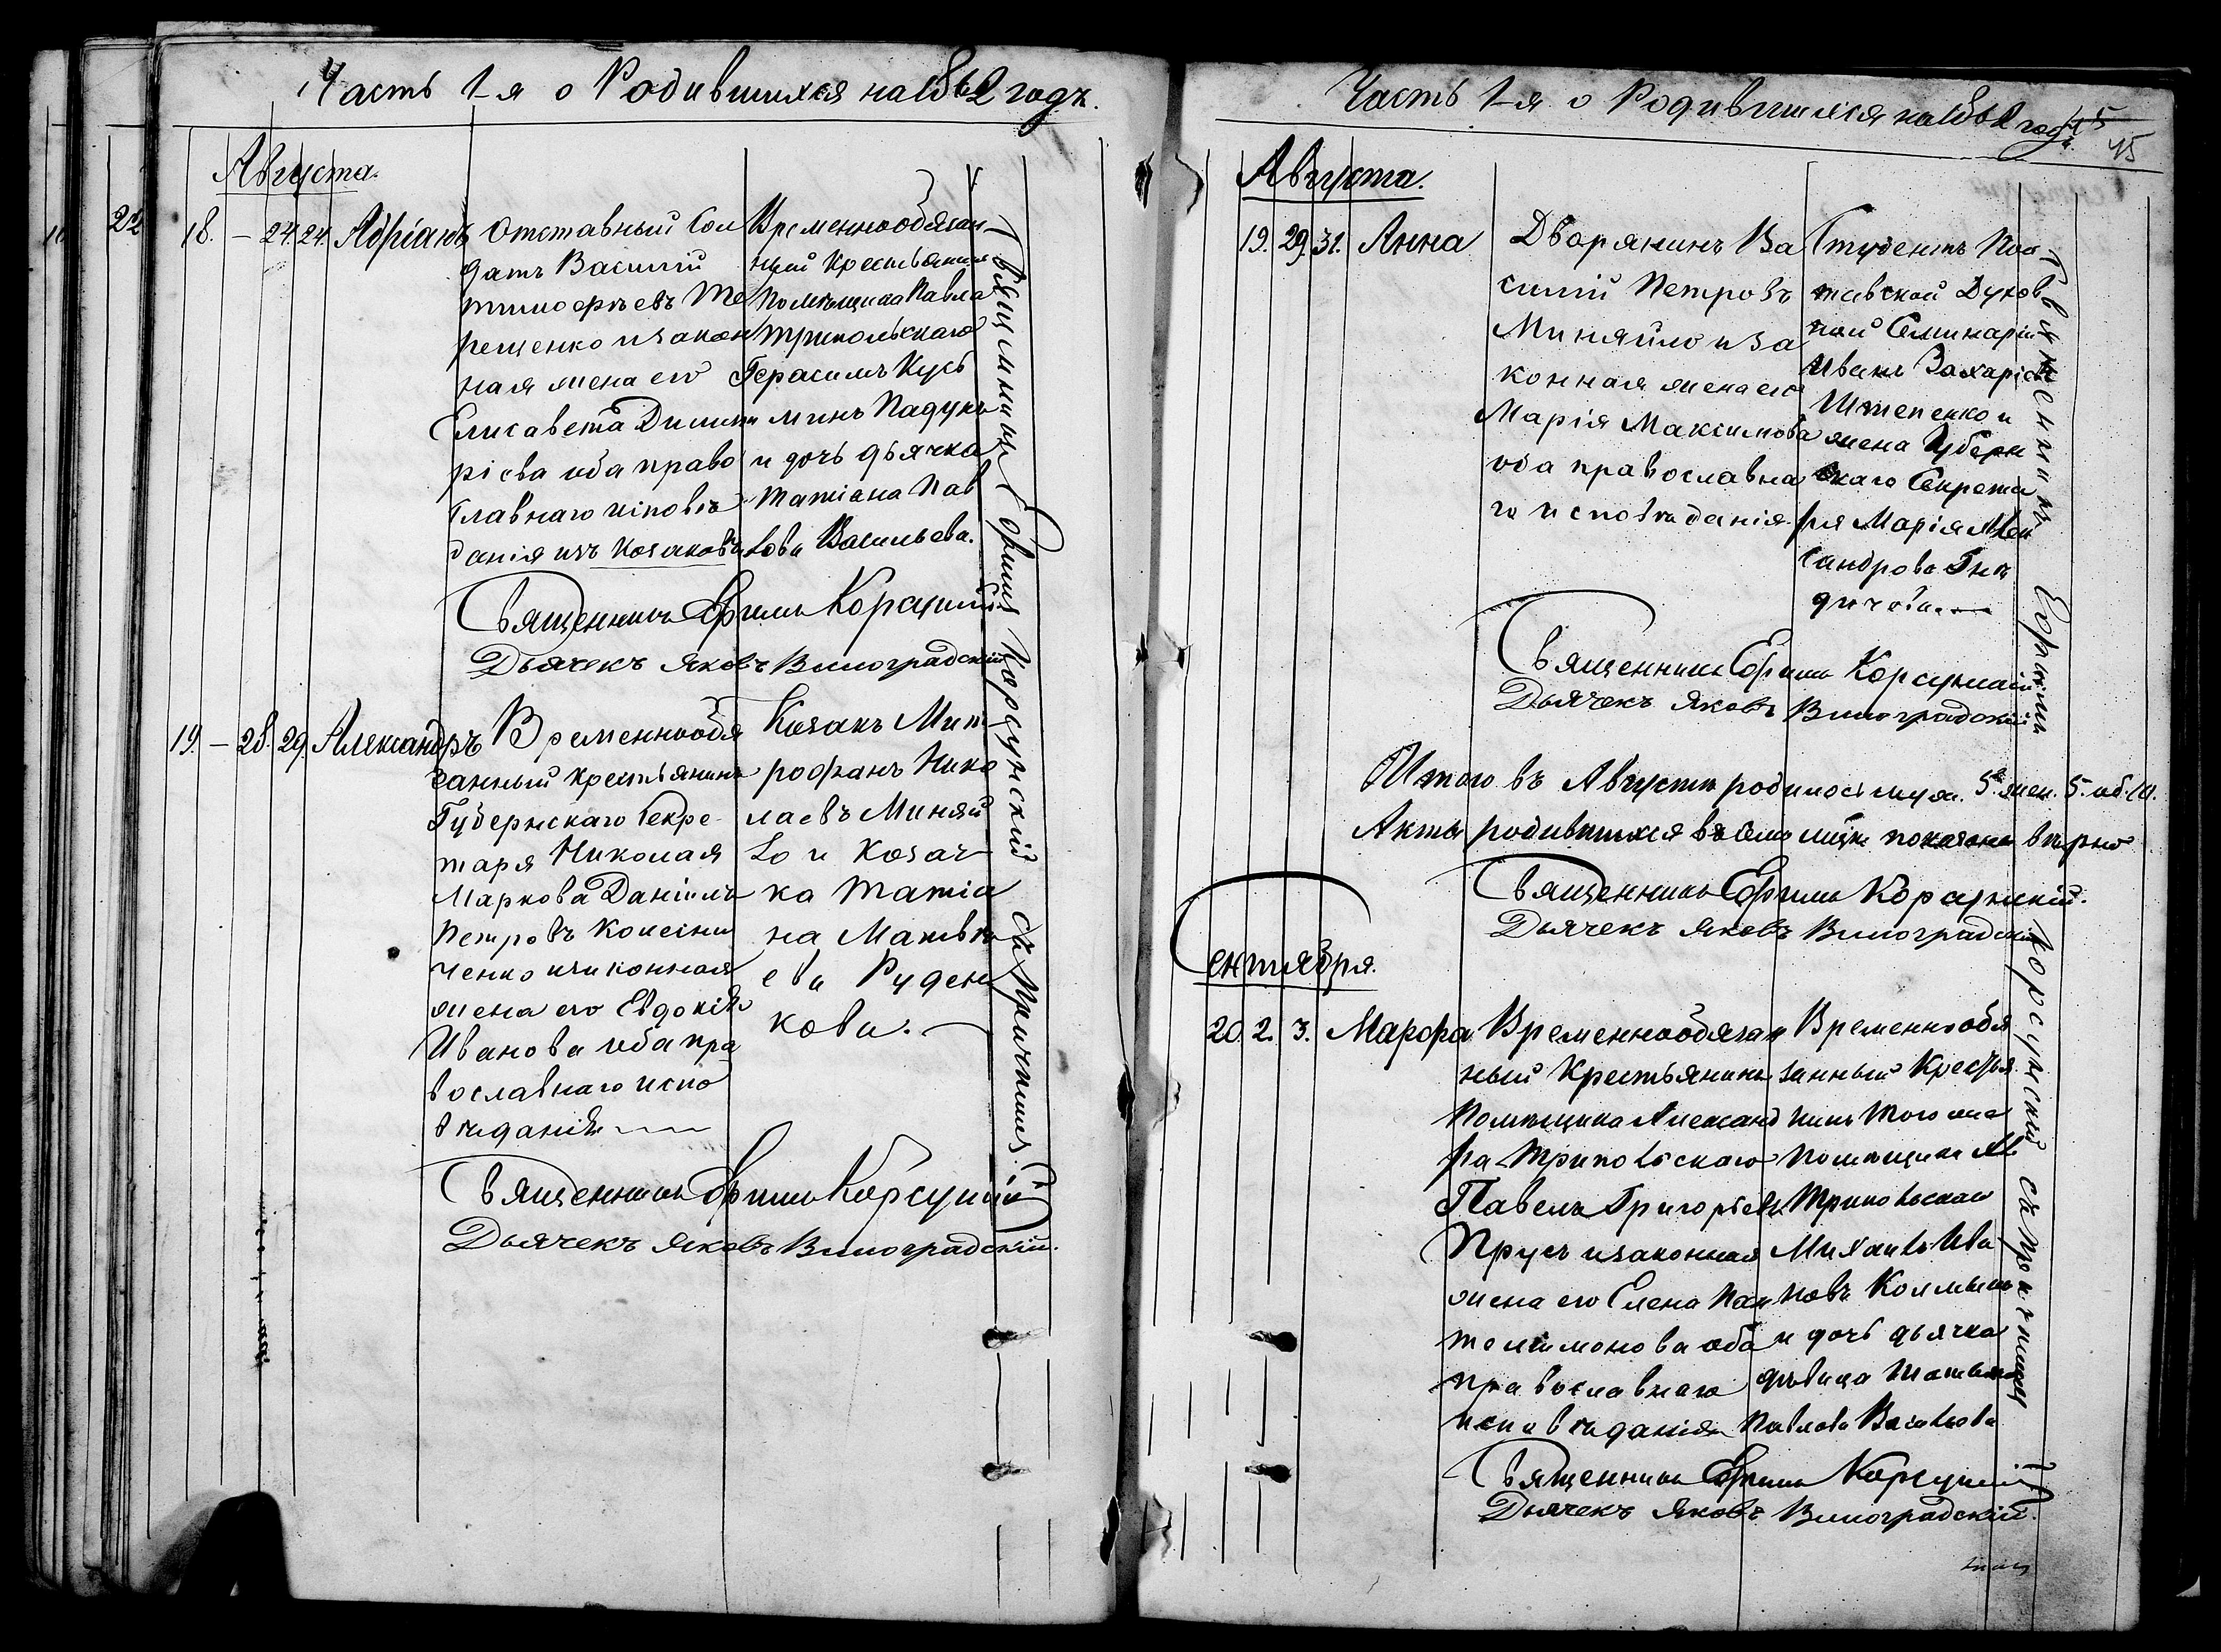 Часть 1-я о Родившихся на 1862 годъ.
Августа.
22
18. — 24. 24. Адріанъ
Отставный Сол
датъ Василій
Тимофѣевъ Те
рещенко и закон
ная жена его
Елисавета Димит
ріева оба право
славнаго исповѣ
данія изъ козаковъ
Временнообязан
ный крестьянинъ
помѣщика Павла
Трипольскаго
Герасимъ Кузь
минъ Падунъ
и дочь дьячка
Татіана Пав
лова Васильева.
Священникъ Ефимъ Корсунскій
Дьячекъ Яковъ Виноградскій
19. — 28. 29. Александръ
Временнообя
занный крестьянинъ
Губернскаго Секре-
таря Николая
Маркова Даніилъ
Петровъ Колесни
ченко и законная
жена его Евдокія
Иванова оба пра
вославнаго испо
вѣданія
Козакъ Мит
рофанъ Нико
лаевъ Миняй
ло и Козач
ка Татіа
на Матвѣ
ева Руден
кова.
Священникъ Ефимъ Корсунскій
Дьячекъ Яковъ Виноградскій.
Священникъ Ефимъ Корсунскій съ причтомъ
Часть 1-я о Родившихся на 1862 годъ
45
Августа.
19. 29. 31. Анна
Дворянинъ Ва
силій Петровъ
Миняйло и за
конная жена его
Марія Максимова
оба православна
го исповѣданія.
Студентъ Пол
тавской Духов
ной Семинаріи
Иванъ Захаріевъ
Штепенко и
жена Губерн
скаго Секрета
ря Марія Алек
сандрова Гнѣ
дичева.
Священникъ Ефимъ Корсунскій
Дьячекъ Яковъ Виноградскій
Итого въ Августѣ родилось муж. 5. жен. 5. об. 10.
Акты родившихся въ семъ мѣсяцѣ показаны вѣрно
Священникъ Ефимъ Корсунскій.
Дьячекъ Яковъ Виноградскій
Сентября.
20. 2. 3. Марфа
Временнообязан
ный Крестьянинъ
Помѣщика Александ
ра Трипольскаго
Павелъ Григорьевъ
Прусъ и законная
жена его Елена Пан
телимонова оба
православнаго
исповѣданія
Временнообя
занный Крестья
нинъ того же
помѣщика
Трипольскаго
Михаилъ Ива
новъ
и дочь дьячка
дѣвица Татьяна
Павлова Васильева
Священникъ Ефимъ Корсунскій
Дьячекъ Яковъ Виноградскій.
Священникъ Ефимъ Корсунскій съ причтомъ